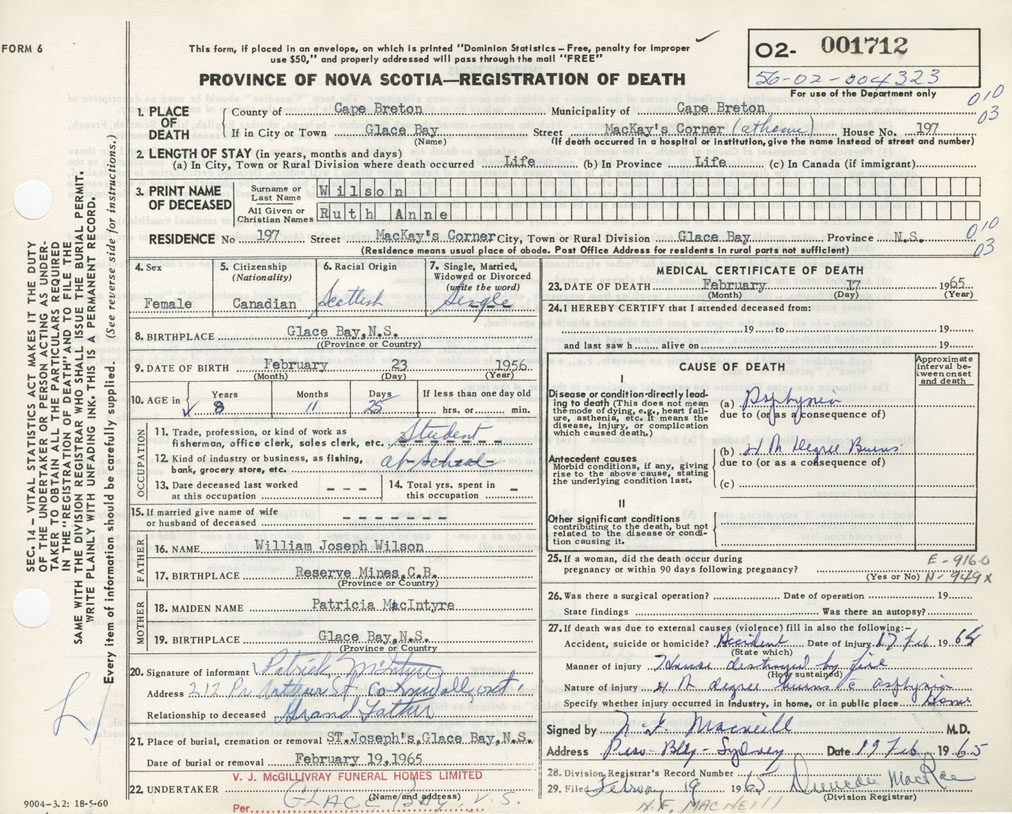 FORM 6
This form, if placed in an envelope, on which is printed "Dominion Statistics – Free, penalty for improper
use $50," and properly addressed will pass through the mail "FREE"
PROVINCE OF NOVA SCOTIA—REGISTRATION OF DEATH
02- 001712
56-02-004323
For use of the Department only
010
03
1. PLACE OF DEATH
County of Cape Breton Municipality of Cape Breton
If in City or Town Glace Bay Street MacKay's Corner (at home) House No. 197
(Name) (If death occurred in a hospital or institution, give the name instead of street and number)
2. LENGTH OF STAY (in years, months and days)
(a) In City, Town or Rural Division where death occurred Life (b) In Province Life (c) In Canada (if immigrant)
3. PRINT NAME OF DECEASED
Surname or Last Name Wilson
All Given or Christian Names Ruth Anne
010
03
RESIDENCE No 197 Street MacKay's Corner City, Town or Rural Division Glace Bay Province N.S.
(Residence means usual place of abode. Post Office Address for residents in rural parts not sufficient)
4. Sex Female
5. Citizenship (Nationality) Canadian
6. Racial Origin Scottish
7. Single, Married, Widowed or Divorced (write the word) Single
8. BIRTHPLACE Glace Bay, N.S.
(Province or Country)
9. DATE OF BIRTH February 23 1956
(Month) (Day) (Year)
10. AGE in Years 8 Months 11 Days 25 If less than one day old hrs. or min.
OCCUPATION
11. Trade, profession, or kind of work as
fisherman, office clerk, sales clerk, etc. Student
12. Kind of industry or business, as fishing,
bank, grocery store, etc. at School
13. Date deceased last worked
at this occupation - - -
14. Total yrs. spent in
this occupation -
15. If married give name of wife
or husband of deceased - - - - - - -
FATHER
16. NAME William Joseph Wilson
17. BIRTHPLACE Reserve Mines, C.B.
(Province or Country)
MOTHER
18. MAIDEN NAME Patricia MacIntyre
19. BIRTHPLACE Glace Bay, N.S.
(Province or Country)
20. Signature of informant Patrick McIntyre
Address 212 Pr Arthur St, Cornwall, ont.
Relationship to deceased Grand Father
21. Place of burial, cremation or removal ST. Joseph's, Glace Bay, N.S.
Date of burial or removal February 19, 1965
22. UNDERTAKER V. J. McGILLIVRAY FUNERAL HOMES LIMITED
(Name and address)
Per GLACE BAY, N.S.
MEDICAL CERTIFICATE OF DEATH
23. DATE OF DEATH February 17 1965
(Month) (Day) (Year)
24. I HEREBY CERTIFY that I attended deceased from:
19 to 19
and last saw h alive on 19
CAUSE OF DEATH
Approximate interval between onset and death
I
Disease or condition directly leading to death (This does not mean the mode of dying, e.g., heart failure, asthenia, etc. It means the disease, injury, or complication which caused death.)
(a) Asphyxia
due to (or as a consequence of)
Antecedent causes
Morbid conditions, if any, giving rise to the above cause, stating the underlying condition last.
(b) 4th Degree Burns
due to (or as a consequence of)
(c)
II
Other significant conditions
contributing to the death, but not related to the disease or condition causing it.
25. If a woman, did the death occur during
pregnancy or within 90 days following pregnancy?
(Yes or No)
E-916.0
N-949X
26. Was there a surgical operation? Date of operation 19
State findings Was there an autopsy?
27. If death was due to external causes (violence) fill in also the following:-
Accident, suicide or homicide? Accident Date of injury 17 Feb 1965
(State which)
Manner of injury House destroyed by fire
(How sustained)
Nature of injury 4th degree burns c̄ asphyxia
Specify whether injury occurred in industry, in home, or in public place Home
Signed by N. F. Macneill M.D.
Address Sydney Date 19 Feb 1965
28. Division Registrar's Record Number
29. Filed February 19 1965 Duncan MacRae
(Division Registrar)
N.F. MACNEILL
SEC. 14 – VITAL STATISTICS ACT MAKES IT THE DUTY
OF THE UNDERTAKER OR PERSON ACTING AS UNDER-
TAKER TO OBTAIN ALL THE PARTICULARS REQUIRED
IN THE "REGISTRATION OF DEATH" AND TO FILE THE
SAME WITH THE DIVISION REGISTRAR WHO SHALL ISSUE THE BURIAL PERMIT.
WRITE PLAINLY WITH UNFADING INK. THIS IS A PERMANENT RECORD.
Every item of information should be carefully supplied. (See reverse side for instructions.)
9004–3.2: 18-5-60